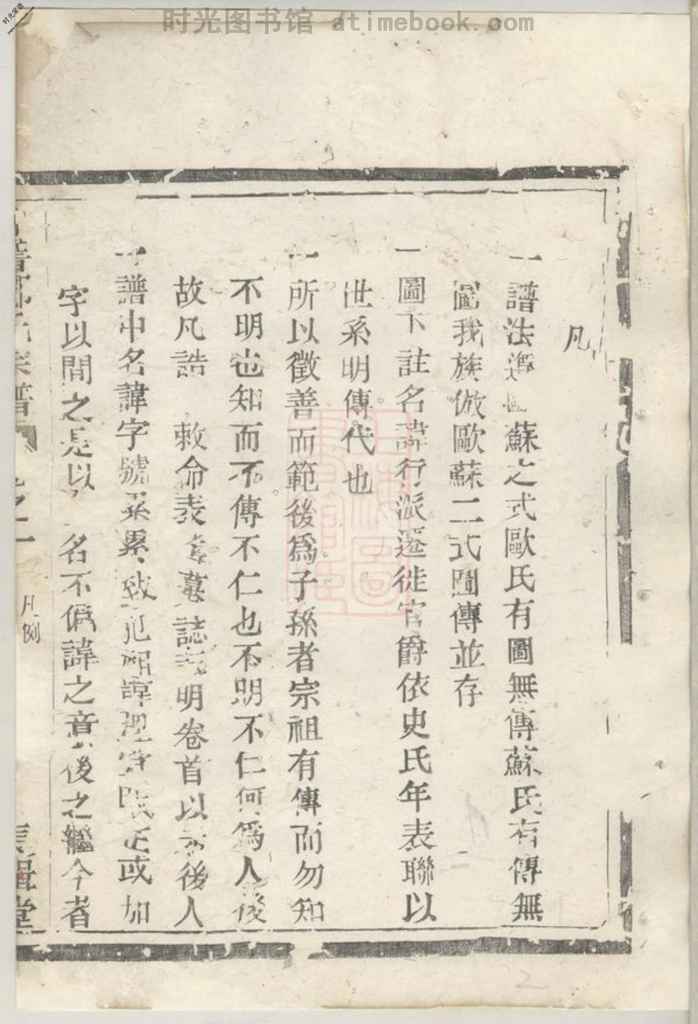 时光图书馆 atimebook.com
凡
一譜法遵蘇之式歐氏有圖無傳蘇氏有傳無
圖我族倣歐蘇二式圖傳並存
一圖下註名諱行派遷徙官爵依史氏年表聯以
世系明傳代也
一所以徵善而範後為子孫者宗祖有傳而勿知
不明也知而不傳不仁也不明不仁何為人後
故凡誥 敕命表墓誌明卷首以示後人
一譜中名諱字號累累致犯諱正或加
字以間之是以名不偏諱之意後之繼今者
宗譜
卷之一
凡例
堂